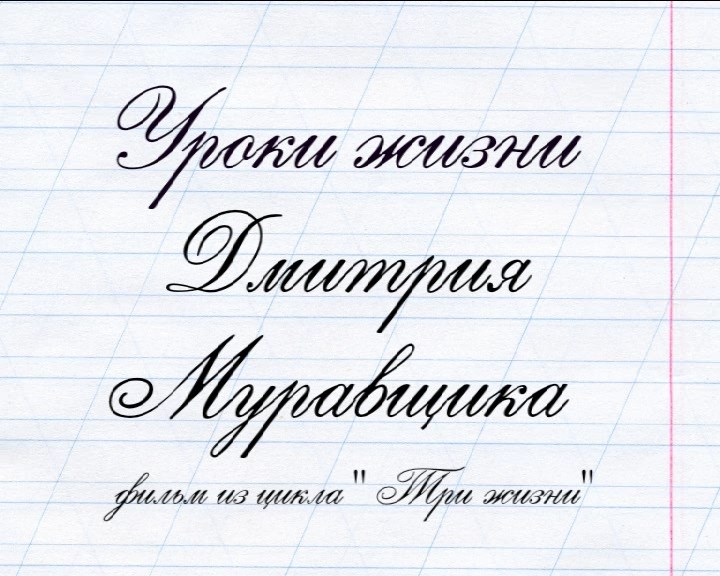 Уроки жизни
Дмитрия
Муравщика
фильм из цикла " Три жизни"